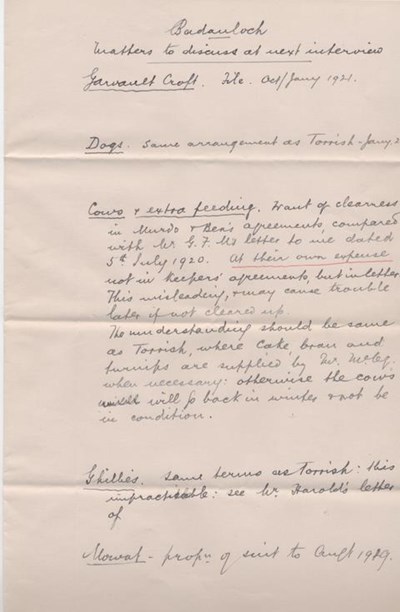 Badanloch
Matters to discuss at next interview
Garvault Croft. File. Oct/Jany 1921.
Dogs. Same arrangement as Torrish - Jany. 2
Cows & extra feeding. Want of clearness
in Murdo & Ben's agreements, compared
with Mr. G. F. M's letter to me dated
5th July 1920. At their own expense
not in keepers' agreements, but in letter
This misleading, & may cause trouble
later if not cleared up.
The understanding should be same
as Torrish, where cake, bran and
turnips are supplied by Mr.
when necessary: otherwise the cows
will go back in winter & not be
in condition.
Ghillies. Same terms as Torrish: this
impracticable: see Mr. Harold's letter
of
Mowat - propn. of rent to Augt